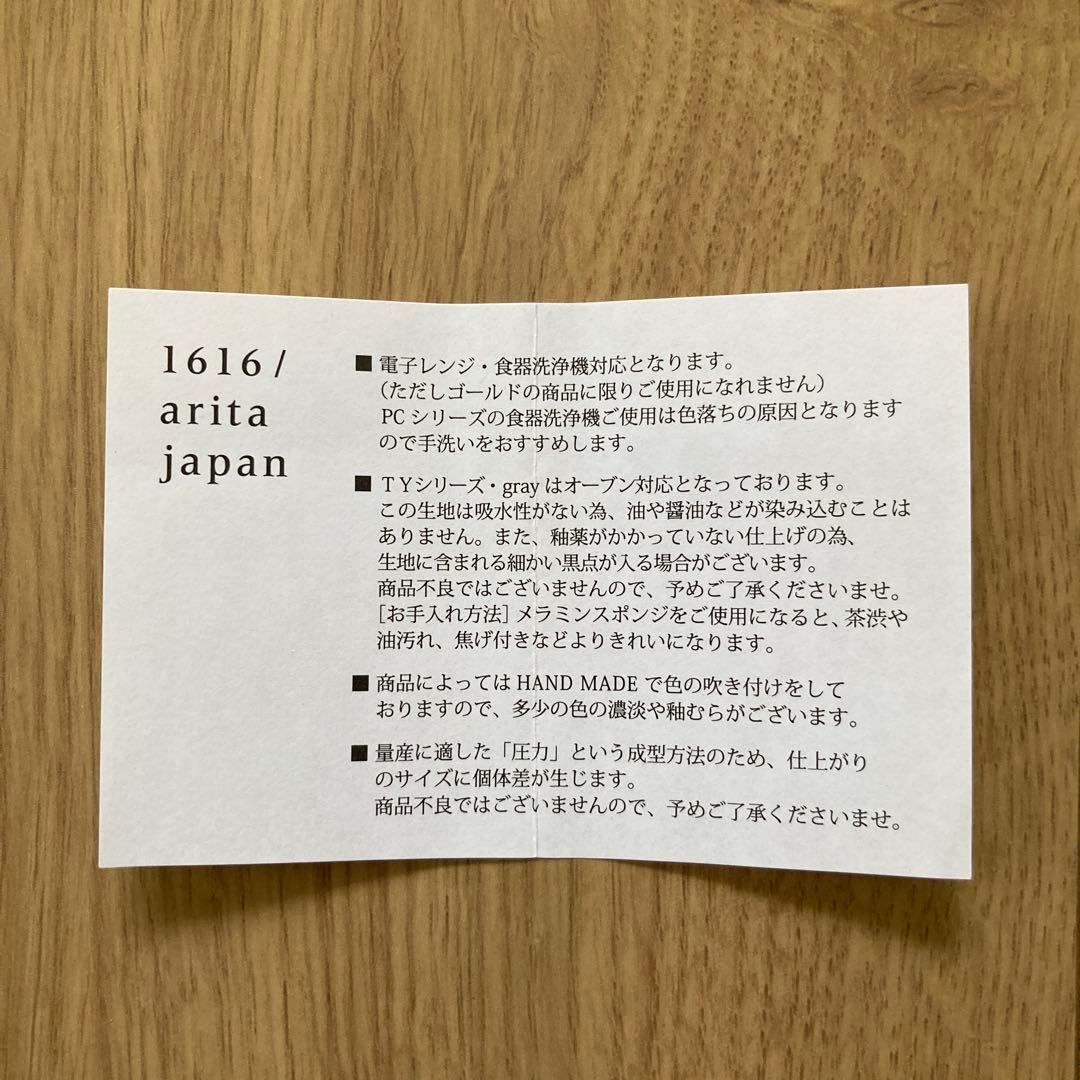 1616 /
arita
japan
■ 電子レンジ・食器洗浄機対応となります。
（ただしゴールドの商品に限りご使用になれません）
PC シリーズの食器洗浄機ご使用は色落ちの原因となります
ので手洗いをおすすめします。
■ TYシリーズ・gray はオーブン対応となっております。
この生地は吸水性がない為、油や醤油などが染み込むことは
ありません。また、釉薬がかかっていない仕上げの為、
生地に含まれる細かい黒点が入る場合がございます。
商品不良ではございませんので、予めご了承くださいませ。
［お手入れ方法］メラミンスポンジをご使用になると、茶渋や
油汚れ、焦げ付きなどよりきれいになります。
■ 商品によっては HAND MADE で色の吹き付けをして
おりますので、多少の色の濃淡や釉むらがございます。
■ 量産に適した「圧力」という成型方法のため、仕上がり
のサイズに個体差が生じます。
商品不良ではございませんので、予めご了承くださいませ。